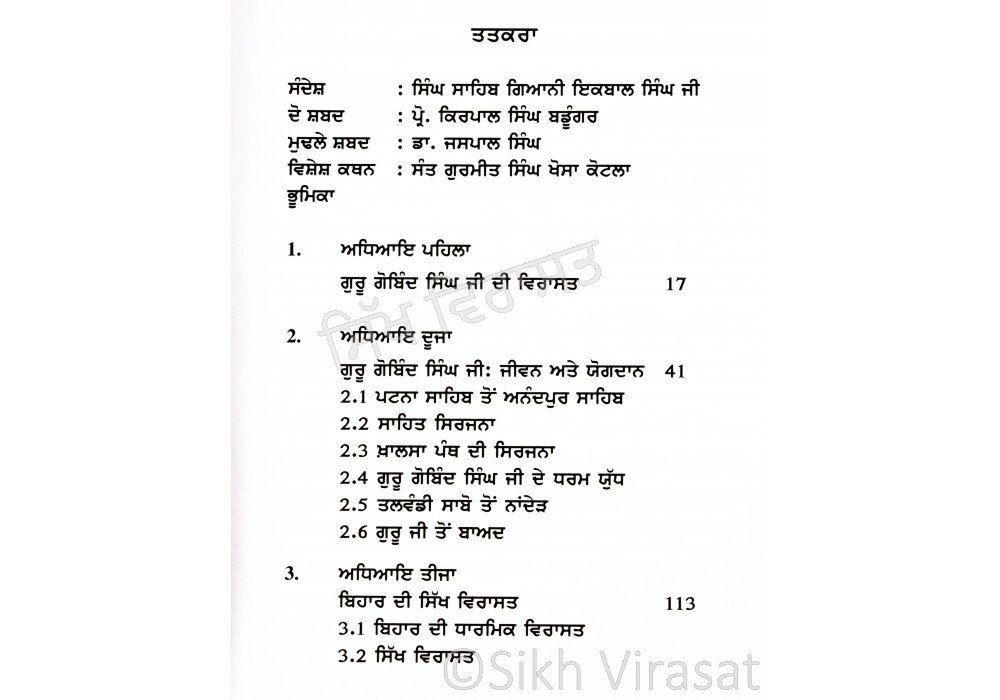 ਤਤਕਰਾ
ਸੰਦੇਸ਼ : ਸਿੰਘ ਸਾਹਿਬ ਗਿਆਨੀ ਇਕਬਾਲ ਸਿੰਘ ਜੀ
ਦੋ ਸ਼ਬਦ : ਪ੍ਰੋ. ਕਿਰਪਾਲ ਸਿੰਘ ਬਡੂੰਗਰ
ਮੁਢਲੇ ਸ਼ਬਦ : ਡਾ. ਜਸਪਾਲ ਸਿੰਘ
ਵਿਸ਼ੇਸ਼ ਕਥਨ : ਸੰਤ ਗੁਰਮੀਤ ਸਿੰਘ ਖੋਸਾ ਕੋਟਲਾ
ਭੂਮਿਕਾ
1. ਅਧਿਆਇ ਪਹਿਲਾ
ਗੁਰੂ ਗੋਬਿੰਦ ਸਿੰਘ ਜੀ ਦੀ ਵਿਰਾਸਤ 17
ਸਿੱਖ ਵਿਰਾਸਤ
2. ਅਧਿਆਇ ਦੂਜਾ
ਗੁਰੂ ਗੋਬਿੰਦ ਸਿੰਘ ਜੀ: ਜੀਵਨ ਅਤੇ ਯੋਗਦਾਨ 41
2.1 ਪਟਨਾ ਸਾਹਿਬ ਤੋਂ ਅਨੰਦਪੁਰ ਸਾਹਿਬ
2.2 ਸਾਹਿਤ ਸਿਰਜਨਾ
2.3 ਖ਼ਾਲਸਾ ਪੰਥ ਦੀ ਸਿਰਜਨਾ
2.4 ਗੁਰੂ ਗੋਬਿੰਦ ਸਿੰਘ ਜੀ ਦੇ ਧਰਮ ਯੁੱਧ
2.5 ਤਲਵੰਡੀ ਸਾਬੋ ਤੋਂ ਨਾਂਦੇੜ
2.6 ਗੁਰੂ ਜੀ ਤੋਂ ਬਾਅਦ
3. ਅਧਿਆਇ ਤੀਜਾ
ਬਿਹਾਰ ਦੀ ਸਿੱਖ ਵਿਰਾਸਤ 113
3.1 ਬਿਹਾਰ ਦੀ ਧਾਰਮਿਕ ਵਿਰਾਸਤ
3.2 ਸਿੱਖ ਵਿਰਾਸਤ
©Sikh Virasat